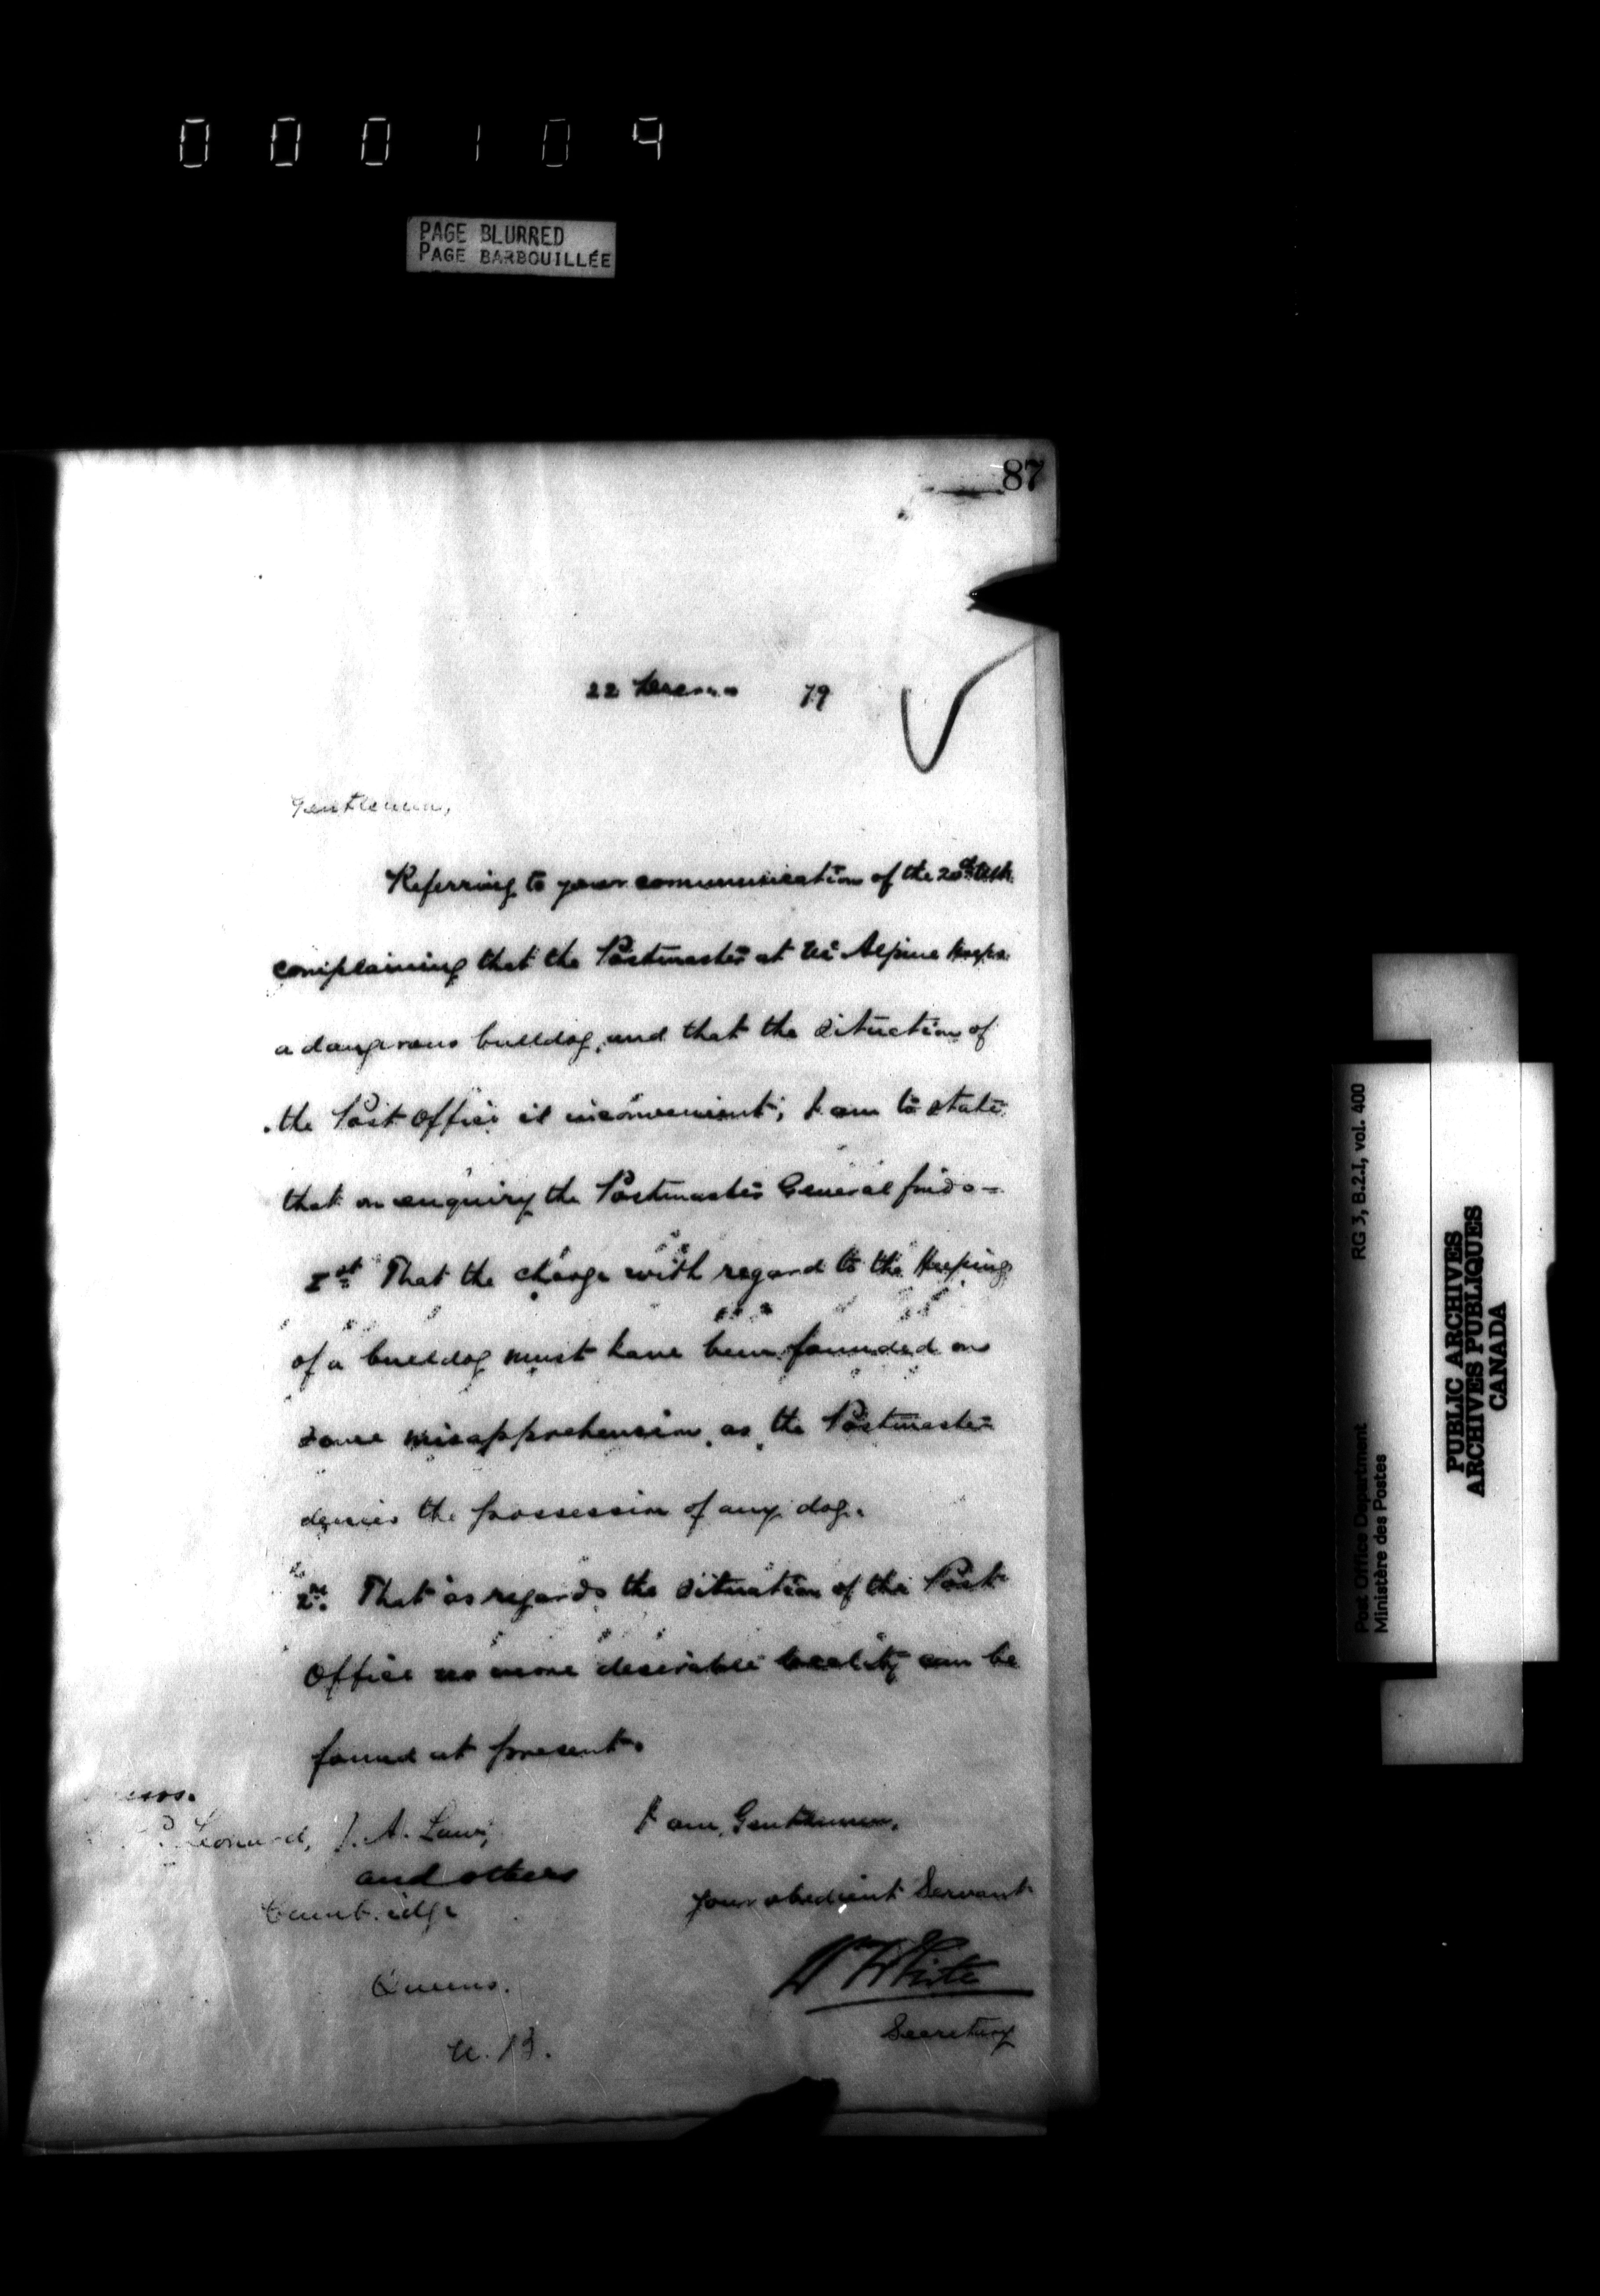 000109
PAGE BLURRED
PAGE BARBOUILLÉE
87
22 79
Gentlemen,
Referring to your communication of the 20th Ult.
complaining that the Postmaster at Alpine keeps
a dangerous bulldog, and that the situation of
the Post Office is inconvenient; I am to state
that on enquiry the Postmaster General finds -
1st That the charge with regard to the keeping
of a bulldog must have been founded on
some misapprehension, as the Postmaster
denies the possession of any dog.
2nd. That as regards the situation of the Post
Office no more desirable locality can be
found at present.
I am, Gentlemen,
Your obedient Servant
W White
Secretary
Leonard, J. A.
and others
Cambridge
Queens.
N. B.
Post Office Department
Ministère des Postes
RG 3, B.2.I, vol. 400
PUBLIC ARCHIVES
ARCHIVES PUBLIQUES
CANADA